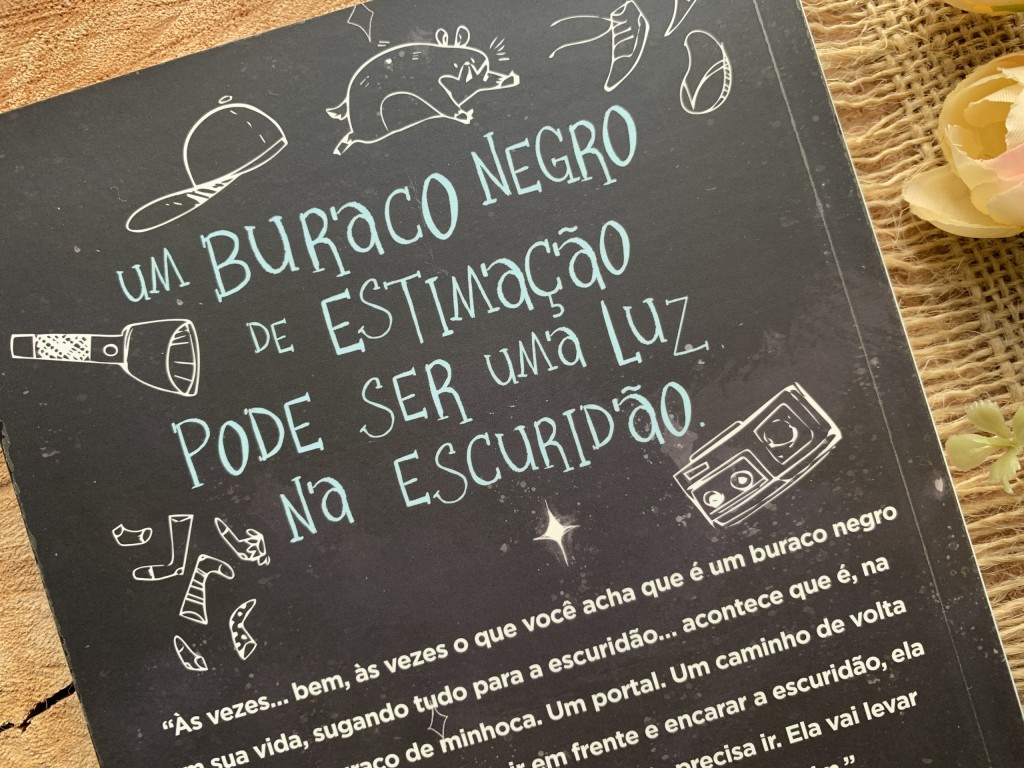 UM BURACO NEGRO
DE ESTIMAÇÃO
PODE SER UMA LUZ
NA ESCURIDÃO.
“Às vezes... bem, às vezes o que você acha que é um buraco negro
sua vida, sugando tudo para a escuridão... acontece que é, na
de minhoca. Um portal. Um caminho de volta
em frente e encarar a escuridão, ela
precisa ir. Ela vai levar